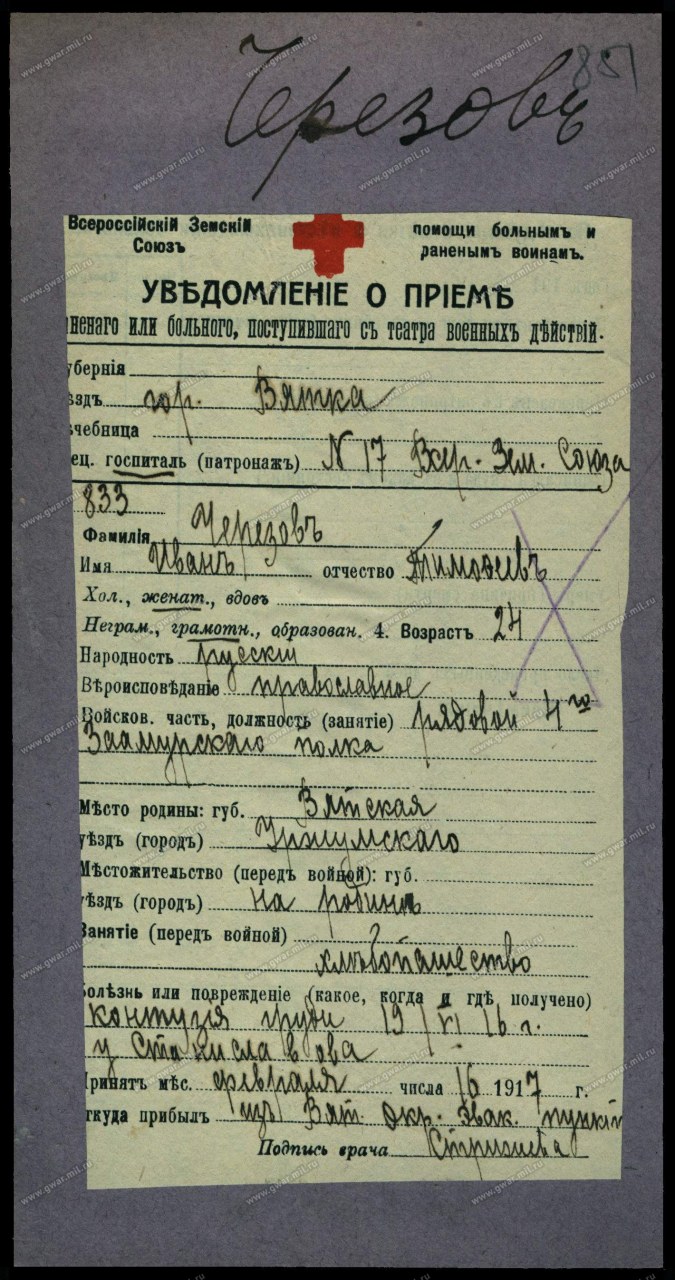 851
Черезовъ
Всероссійскій Земскій
Союзъ
помощи больнымъ и
раненымъ воинамъ.
УВѢДОМЛЕНІЕ О ПРІЕМѢ
неного или больного, поступившаго съ театра военныхъ дѣйствій.
убернія
ѣздъ гор. Вятка
чебница
ец. госпиталь (патронажъ) N 17 Всер. Зем. Союза
833
Фамилія Черезовъ
Имя Иванъ отчество Тимоѳеевъ
Хол., женат., вдовъ
Неграм., грамотн., образован. 4. Возрастъ 24
Народность русскій
Вѣроисповѣданіе православное
Войсков. часть, должность (занятіе) рядовой 4го
Заамурскаго полка
Мѣсто родины: губ. Вятская
уѣздъ (городъ) Уржумскаго
Мѣстожительство (передъ войной): губ.
уѣздъ (городъ) на родинѣ
Занятіе (передъ войной)
хлѣбопашество
Болѣзнь или поврежденіе (какое, когда и гдѣ получено)
контузія груди 19/VI 16 г.
у Станиславова
Принятъ мѣс. февраля числа 16 1917 г.
ткуда прибылъ изъ Вят. окр. Эвак. пункт
Подпись врача
www.gwar.mil.ru